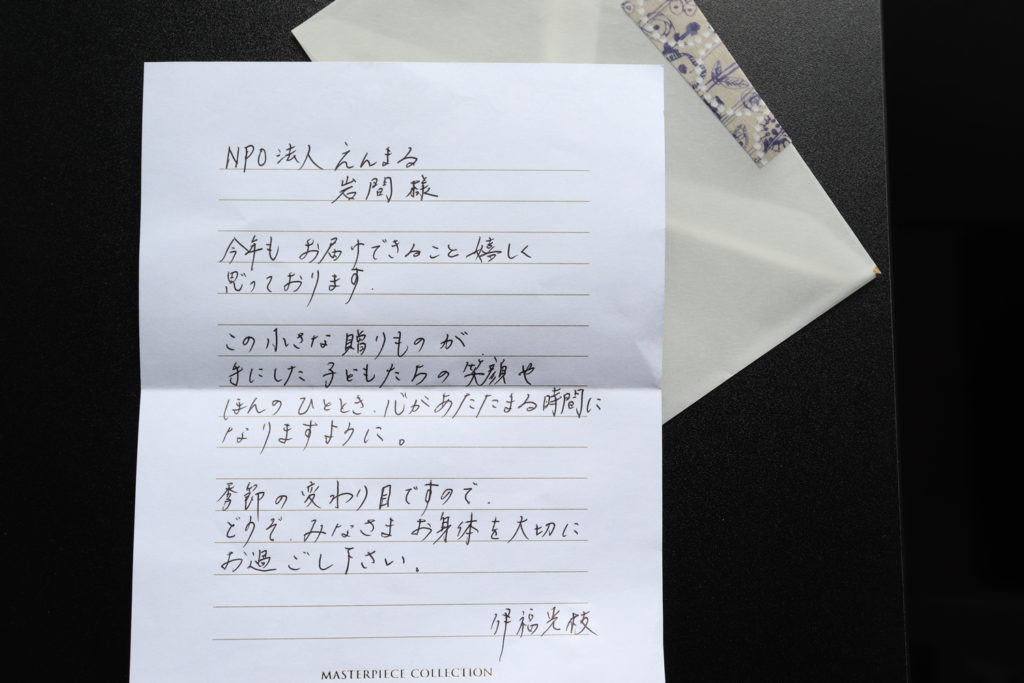 NPO法人 えんまる
岩間 様
今年も お届けできること 嬉しく
思っております.
この小さな 贈りものが
手にした 子どもたちの 笑顔や
ほんの ひととき、心があたたまる時間に
なりますように。
季節の変わり目ですので、
どうぞ、みなさま お身体を大切に
お過ごし下さい。
伊福光枝
MASTERPIECE COLLECTION